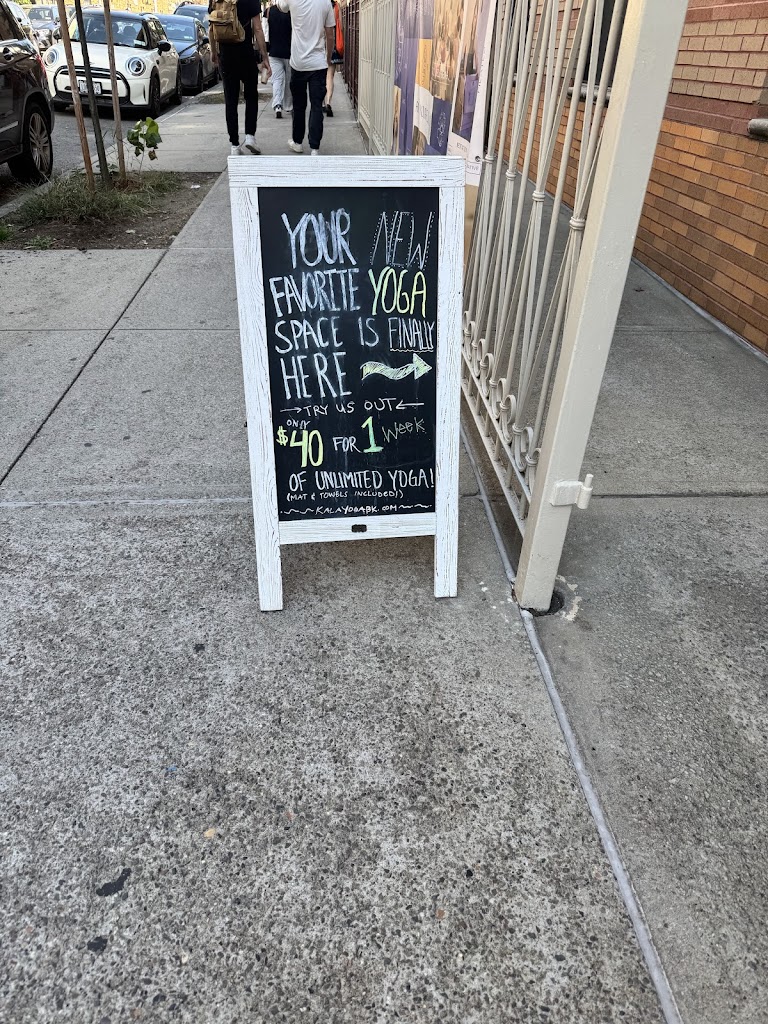 YOUR NEW
FAVORITE YOGA
SPACE IS FINALLY
HERE →
→TRY US OUT←
ONLY
$40 FOR 1 Week
OF UNLIMITED YOGA!
(MAT & TOWELS INCLUDED!)
~~KALAYOGABK.COM~~